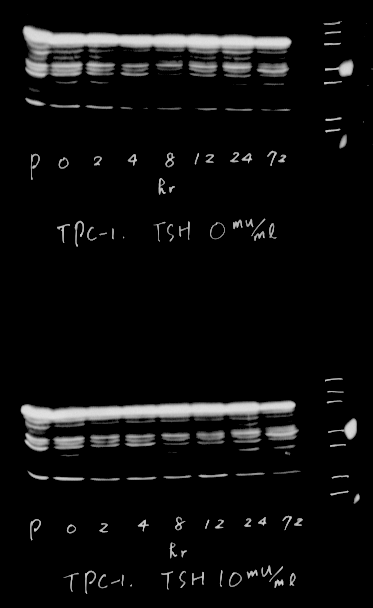 P 0 2 4 8 12 24 72
hr
TPC-1. TSH 0 mU/ml
P 0 2 4 8 12 24 72
hr
TPC-1. TSH 10 mU/ml